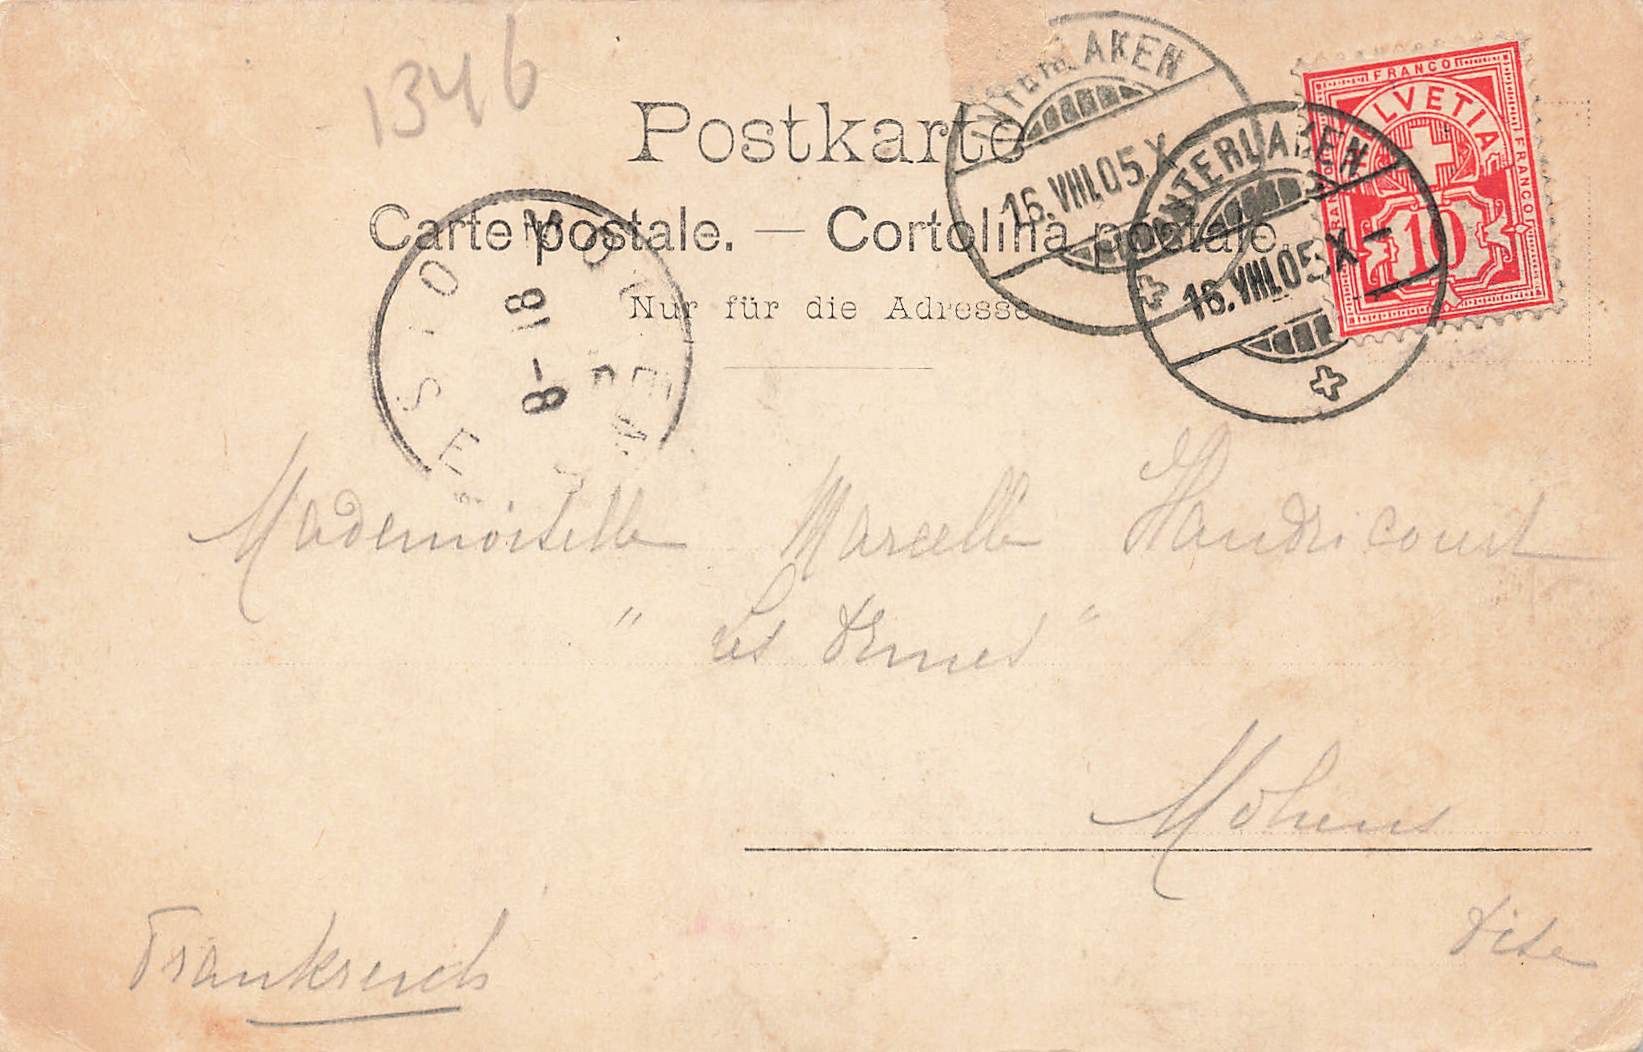 1346
Postkarte
Carte postale. — Cortolina postale.
Nur für die Adresse
INTERLAKEN
16.VIII.05.X
INTERLAKEN
16.VIII.05.X-
FRANCO
HELVETIA
FRANCO
FRANCO
10
OISE
8-
18
Mademoiselle Marcelle Haudricourt
" Les
Oise
Frankreich